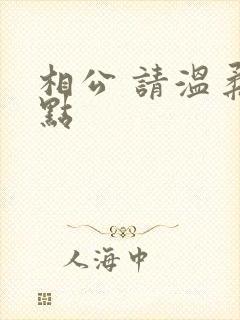 相公 請溫柔
點
人海中